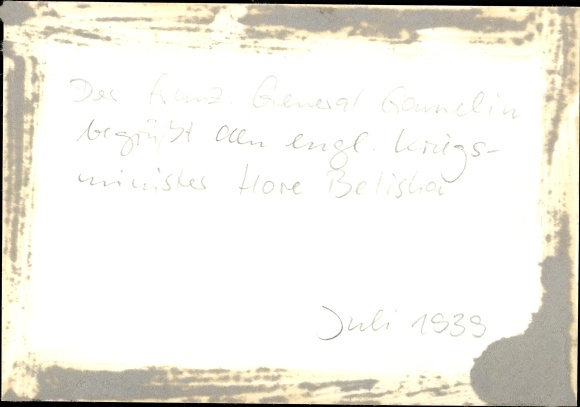 Der franz. General Gamelin
begrüßt den engl. Kriegs-
minister Hore Belisha
Juli 1939